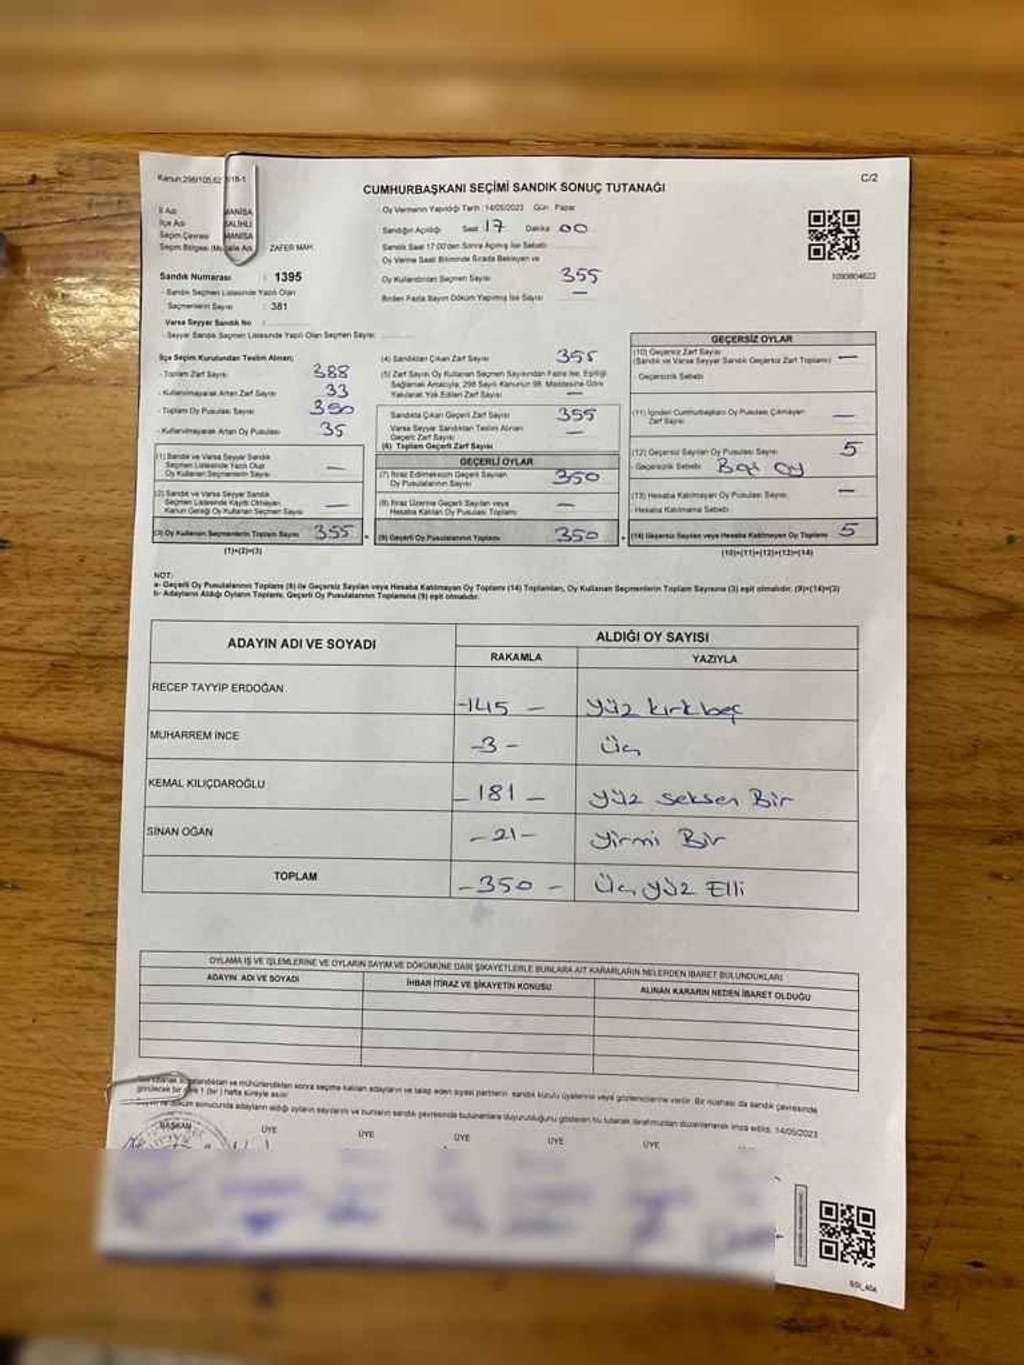 Kanun:298/105,62
C/2
CUMHURBAŞKANI SEÇİMİ SANDIK SONUÇ TUTANAĞI
İl Adı MANİSA
İlçe Adı SALİHLİ
Seçim Çevresi MANİSA
Seçim Bölgesi ZAFER MAH.
Sandık Numarası : 1395
- Sandık Seçmen Listesinde Yazılı Olan
Seçmenlerin Sayısı : 381
Varsa Seyyar Sandık No :
- Seyyar Sandık Seçmen Listesinde Yazılı Olan Seçmen Sayısı
Oy Vermenin Yapıldığı Tarih : 14/05/2023 Gün : Pazar
Sandığın Açıldığı Saat 17 Dakika 00
Sandık Saat 17:00'den Sonra Açılmış İse Sebebi
Oy Verme Saati Bitiminde Sırada Bekleyen ve
Oy Kullandırılan Seçmen Sayısı 355
Birden Fazla Sayım Döküm Yapılmış İse Sayısı —
1093804622
İlçe Seçim Kurulundan Teslim Alınan;
- Toplam Zarf Sayısı 388
- Kullanılmayarak Artan Zarf Sayısı 33
- Toplam Oy Pusulası Sayısı 390
- Kullanılmayarak Artan Oy Pusulası 35
(1) Sandık ve Varsa Seyyar Sandık
Seçmen Listesinde Yazılı Olup
Oy Kullanan Seçmenlerin Sayısı —
(2) Sandık ve Varsa Seyyar Sandık
Seçmen Listesinde Kayıtlı Olmayan
Kanun Gereği Oy Kullanan Seçmen Sayısı —
(3) Oy Kullanan Seçmenlerin Toplam Sayısı 355
(1)+(2)=(3)
(4) Sandıktan Çıkan Zarf Sayısı 355
(5) Zarf Sayısı Oy Kullanan Seçmen Sayısından Fazla ise, Eşitliği
Sağlamak Amacıyla, 298 Sayılı Kanunun 98. Maddesine Göre
Yakılarak Yok Edilen Zarf Sayısı —
Sandıkta Çıkan Geçerli Zarf Sayısı 355
Varsa Seyyar Sandıktan Teslim Alınan
Geçerli Zarf Sayısı —
(6) Toplam Geçerli Zarf Sayısı
GEÇERLİ OYLAR
(7) İtiraz Edilmeksizin Geçerli Sayılan
Oy Pusulalarının Sayısı 350
(8) İtiraz Üzerine Geçerli Sayılan veya
Hesaba Katılan Oy Pusulası Toplamı —
(9) Geçerli Oy Pusulalarının Toplamı 350
GEÇERSİZ OYLAR
(10) Geçersiz Zarf Sayısı
(Sandık ve Varsa Seyyar Sandık Geçersiz Zarf Toplamı) —
- Geçersizlik Sebebi
(11) İçinden Cumhurbaşkanı Oy Pusulası Çıkmayan
Zarf Sayısı —
(12) Geçersiz Sayılan Oy Pusulası Sayısı 5
- Geçersizlik Sebebi Boş oy
(13) Hesaba Katılmayan Oy Pusulası Sayısı —
- Hesaba Katılmama Sebebi
(14) Geçersiz Sayılan veya Hesaba Katılmayan Oy Toplamı 5
(10)+(11)+(12)+(13)=(14)
NOT:
a- Geçerli Oy Pusulalarının Toplamı (9) ile Geçersiz Sayılan veya Hesaba Katılmayan Oy Toplamı (14) Toplamları, Oy Kullanan Seçmenlerin Toplam Sayısına (3) eşit olmalıdır. (9)+(14)=(3)
b- Adayların Aldığı Oyların Toplamı, Geçerli Oy Pusulalarının Toplamına (9) eşit olmalıdır.
ADAYIN ADI VE SOYADI
ALDIĞI OY SAYISI
RAKAMLA YAZIYLA
RECEP TAYYİP ERDOĞAN -145 - Yüz kırk beş
MUHARREM İNCE -3- Üç
KEMAL KILIÇDAROĞLU - 181 - Yüz Seksen Bir
SİNAN OĞAN -21- Yirmi Bir
TOPLAM -350- Üç Yüz Elli
OYLAMA İŞ VE İŞLEMLERİNE VE OYLARIN SAYIM VE DÖKÜMÜNE DAİR ŞİKAYETLERLE BUNLARA AİT KARARLARIN NELERDEN İBARET BULUNDUKLARI
ADAYIN ADI VE SOYADI
İHBAR İTİRAZ VE ŞİKAYETİN KONUSU
ALINAN KARARIN NEDEN İBARET OLDUĞU
ve mühürlendikten sonra seçime katılan adayların ve talep eden siyasi partilerin sandık kurulu üyelerine veya gözlemcilerine verilir. Bir nüshası da sandık çevresinde
görülecek bir yere 1 (bir) hafta süreyle asılır.
döküm sonucunda adayların aldığı oyların sayılarını ve bunların sandık çevresinde bulunanlara duyurulduğunu gösteren bu tutanak tarafımızdan düzenlenerek imza edildi. 14/05/2023
BAŞKAN ÜYE ÜYE ÜYE ÜYE ÜYE